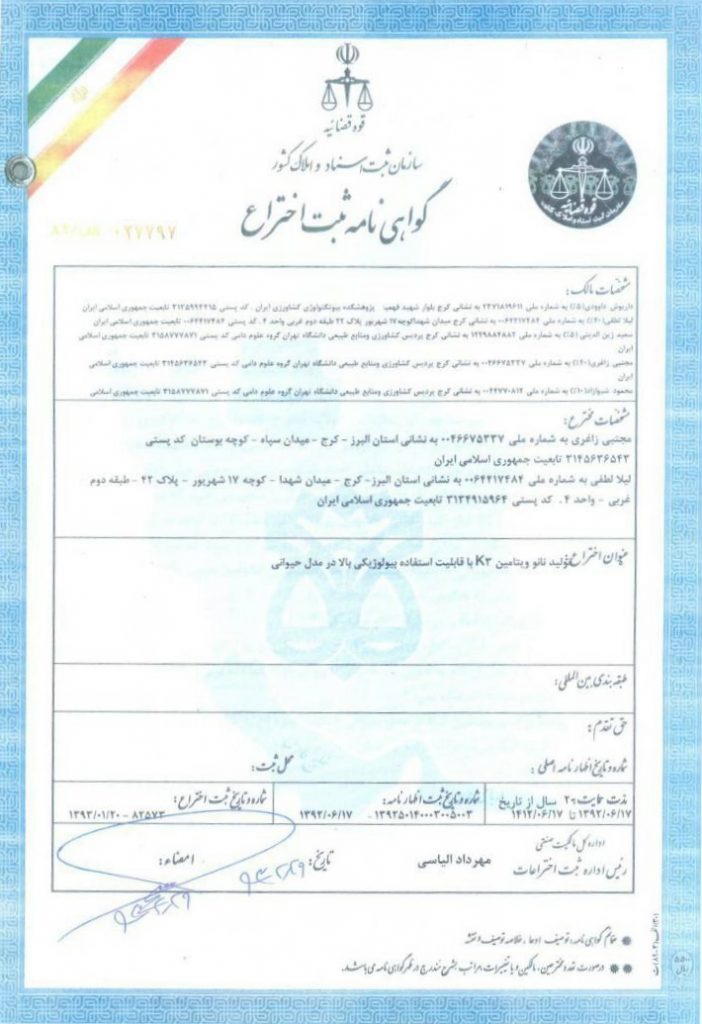 قوه قضائیه
سازمان ثبت اسناد و املاک کشور
گواهی نامه ثبت اختراع
قوه قضائیه
سازمان ثبت اسناد و املاک کشور
۰۲۷۷۹۷
مشخصات مالک:
داریوش داوودی(۵٪) به شماره ملی ۲۳۷۱۸۱۹۶۱۱ به نشانی کرج بلوار شهید فهمیده پژوهشکده بیوتکنولوژی کشاورزی ایران . کد پستی ۳۱۳۵۹۳۳۱۵ تابعیت جمهوری اسلامی ایران
لیلا لطفی(۴۰٪) به شماره ملی ۰۰۶۴۴۱۷۴۸۴ به نشانی کرج میدان شهدا کوچه ۱۷ شهریور پلاک ۴۲ طبقه دوم غربی واحد ۴ . کد پستی ۰۰۶۴۴۱۷۴۸۴ تابعیت جمهوری اسلامی ایران
سعید زین الدینی (۵٪) به شماره ملی ۱۲۲۹۸۸۴۸۸۲ به نشانی کرج پردیس کشاورزی ومنابع طبیعی دانشگاه تهران گروه علوم دامی کد پستی ۳۱۵۸۷۷۷۸۷۱ تابعیت جمهوری اسلامی
ایران
مجتبی زاغری(۴۰٪) به شماره ملی ۰۰۴۶۶۷۵۳۳۷ به نشانی کرج پردیس کشاورزی ومنابع طبیعی دانشگاه تهران گروه علوم دامی کد پستی ۳۱۴۵۶۳۶۵۴۳ تابعیت جمهوری اسلامی
ایران
محمود شیوازاد(۱۰٪) به شماره ملی ۰۰۴۴۷۷۰۸۱۲ به نشانی کرج پردیس کشاورزی ومنابع طبیعی دانشگاه تهران گروه علوم دامی کد پستی ۳۱۵۸۷۷۷۸۷۱ تابعیت جمهوری اسلامی ایران
مشخصات مخترع:
مجتبی زاغری به شماره ملی ۰۰۴۶۶۷۵۳۳۷ به نشانی استان البرز - کرج - میدان سپاه - کوچه بوستان کد پستی
۳۱۴۵۶۳۶۵۴۳ تابعیت جمهوری اسلامی ایران
لیلا لطفی به شماره ملی ۰۰۶۴۴۱۷۴۸۴ به نشانی استان البرز- کرج - میدان شهدا - کوچه ۱۷ شهریور - پلاک ۴۲ - طبقه دوم
غربی - واحد ۴ . کد پستی ۳۱۳۴۹۱۵۹۶۴ تابعیت جمهوری اسلامی ایران
عنوان اختراع: تولید نانو ویتامین K۳ با قابلیت استفاده بیولوژیکی بالا در مدل حیوانی
طبقه بندی بین المللی:
حق تقدم:
شماره و تاریخ اظهار نامه اصلی: محل ثبت:
مدت حمایت ۲۰ سال از تاریخ
۱۳۹۲/۰۶/۱۷ تا ۱۴۱۲/۰۶/۱۷
شماره و تاریخ ثبت اظهار نامه:
۱۳۹۲۵۰۱۴۰۰۰۳۰۰۵۰۰۳ - ۱۳۹۲/۰۶/۱۷
شماره و تاریخ ثبت اختراع:
۸۲۵۷۳ - ۱۳۹۳/۰۱/۲۰
اداره کل مالکیت صنعتی
رئیس اداره ثبت اختراعات مهرداد الیاسی تاریخ: امضاء:
ضمائم گواهی نامه: توصیف، ادعا، خلاصه توصیف و نقشه
در صورت تعدد مخترعین، مالکین و یا تغییرات، مراتب بشرح مندرج در ظهر گواهی نامه می باشد.